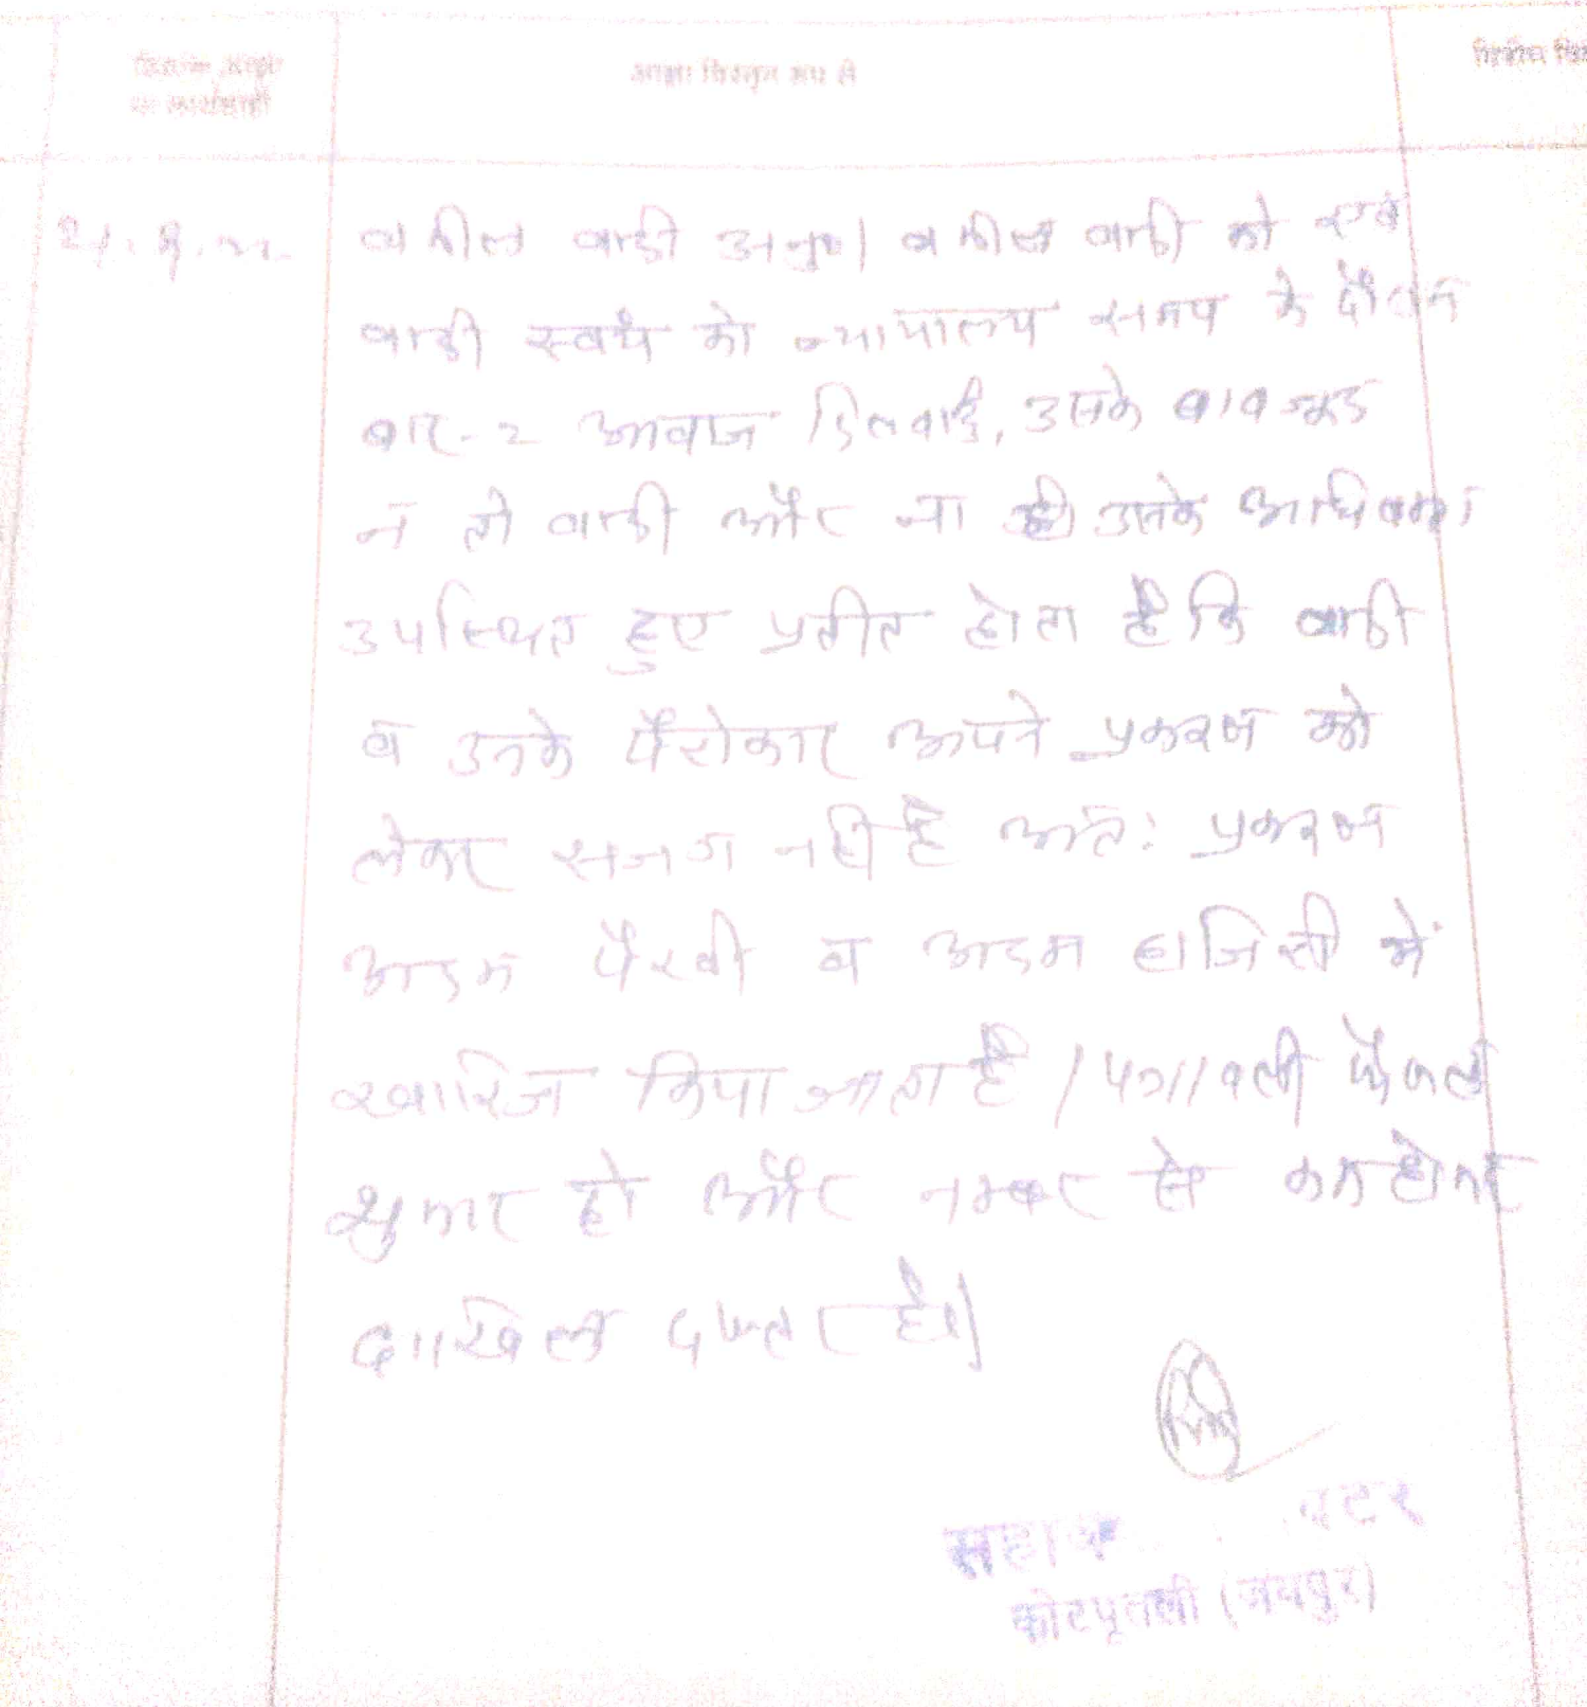 आज्ञा विस्तृत रूप से
वकील वादी अनुप। वकील वादी को एवं
वादी स्वयं को न्यायालय समय के दौरान
बार-२ आवाज दिलवाई, उसके बावजूद
न तो वादी और ना ही उनके अधिवक्ता
उपस्थित हुए प्रतीत होता है कि वादी
व उनके पैरोकार अपने प्रकरण को
लेकर सजग नही है अतः प्रकरण
अदम पैरवी व अदम हाजिरी में
खारिज किया जाता है । पत्रावली फैसल
शुमार हो और नम्बर से कम होकर
दाखिल दफ्तर हो।
कोटपूतली (जयपुर)